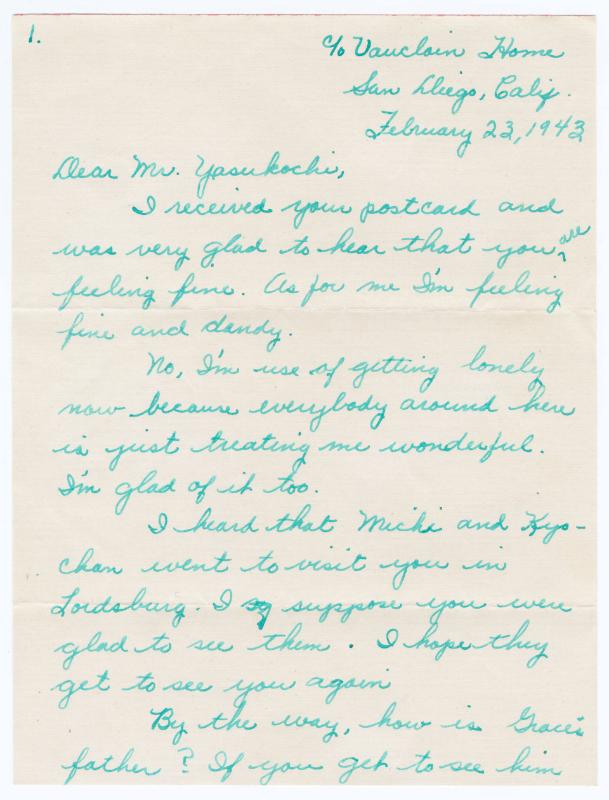 1.
c/o Vauclain Home
San Diego, Calif.
February 23, 1943
Dear Mr. Yasukochi,
I received your postcard and
was very glad to hear that you are
feeling fine. As for me I'm feeling
fine and dandy.
No, I'm use of getting lonely
now because everybody around here
is just treating me wonderful.
I'm glad of it too.
I heard that Michi and Kyo-
chan went to visit you in
Lordsburg. I suppose you were
glad to see them. I hope they
get to see you again
By the way, how is Grace's
father? If you get to see him